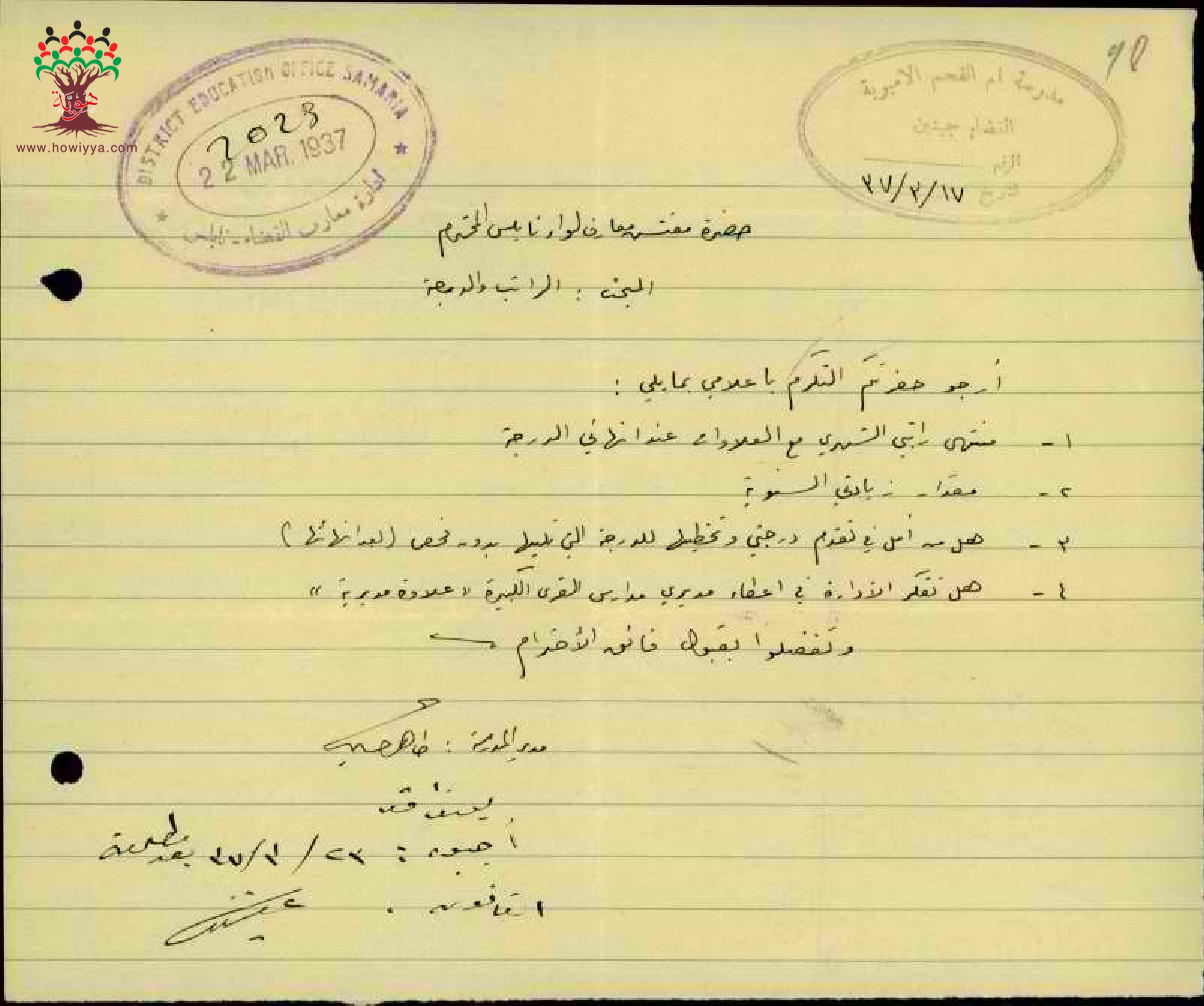 هوية
www.howiyya.com
DISTRICT EDUCATION OFFICE SAMARIA
2028
22 MAR. 1937
ادارة معارف القضاء - نابلس
مدرسة ام الفحم الاميرية
القضاء جنين
الرقم
التاريخ ٣٧/٣/١٧
حضرة مفتش معارف لواء نابلس المحترم
المبحث : الراتب والدرجة
أرجو حضرتكم التكرم باعلامي بمايلي :
١ - منتهى راتبي الشهري مع العلاوات عند انتهائي الدرجة
٢ - مقدار زيادتي السنوية
٣ - هل من أمل في تقدم درجتي وتخطيها للدرجة التي تليها بدون فحص (بعد انهائها)
٤ - هل تفكر الادارة في اعطاء مديري مدارس القرى الكبيرة "علاوة مديرية"
وتفضلوا بقبول فائق الأحترام
مدير المدرسة :
٣٧/٣/٢٣